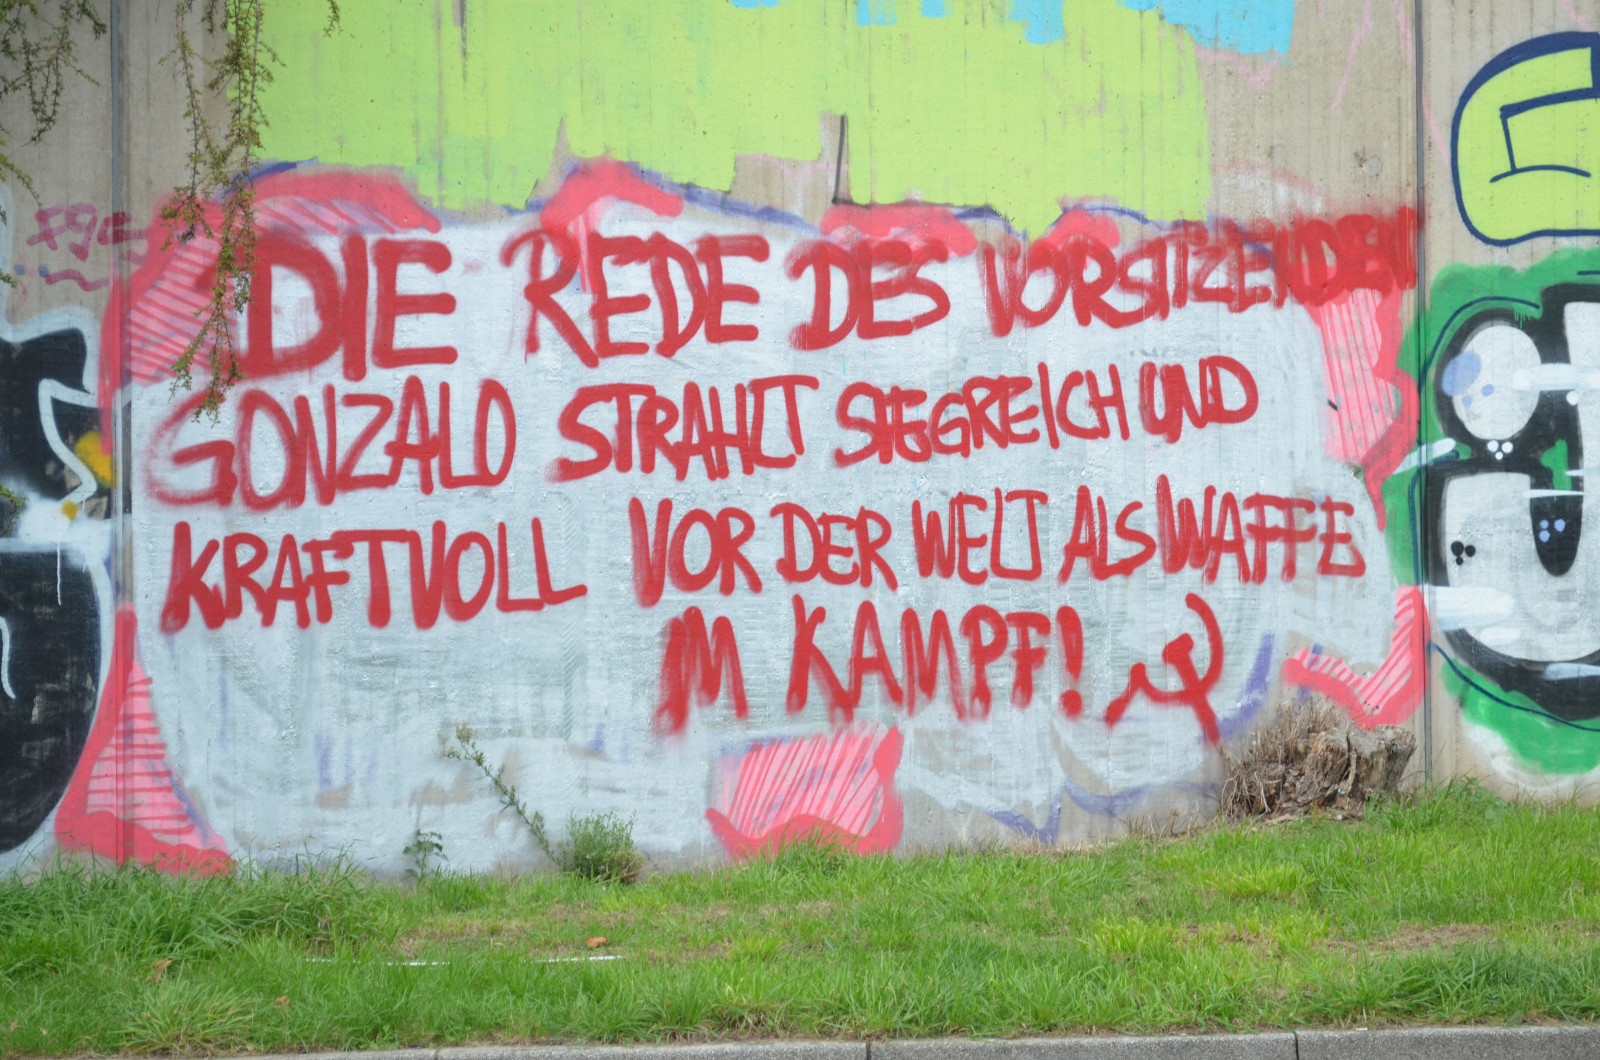 DIE REDE DES VORSITZENDEN
GONZALO STRAHLT SIEGREICH UND
KRAFTVOLL VOR DER WELT ALS WAFFE
IM KAMPF!